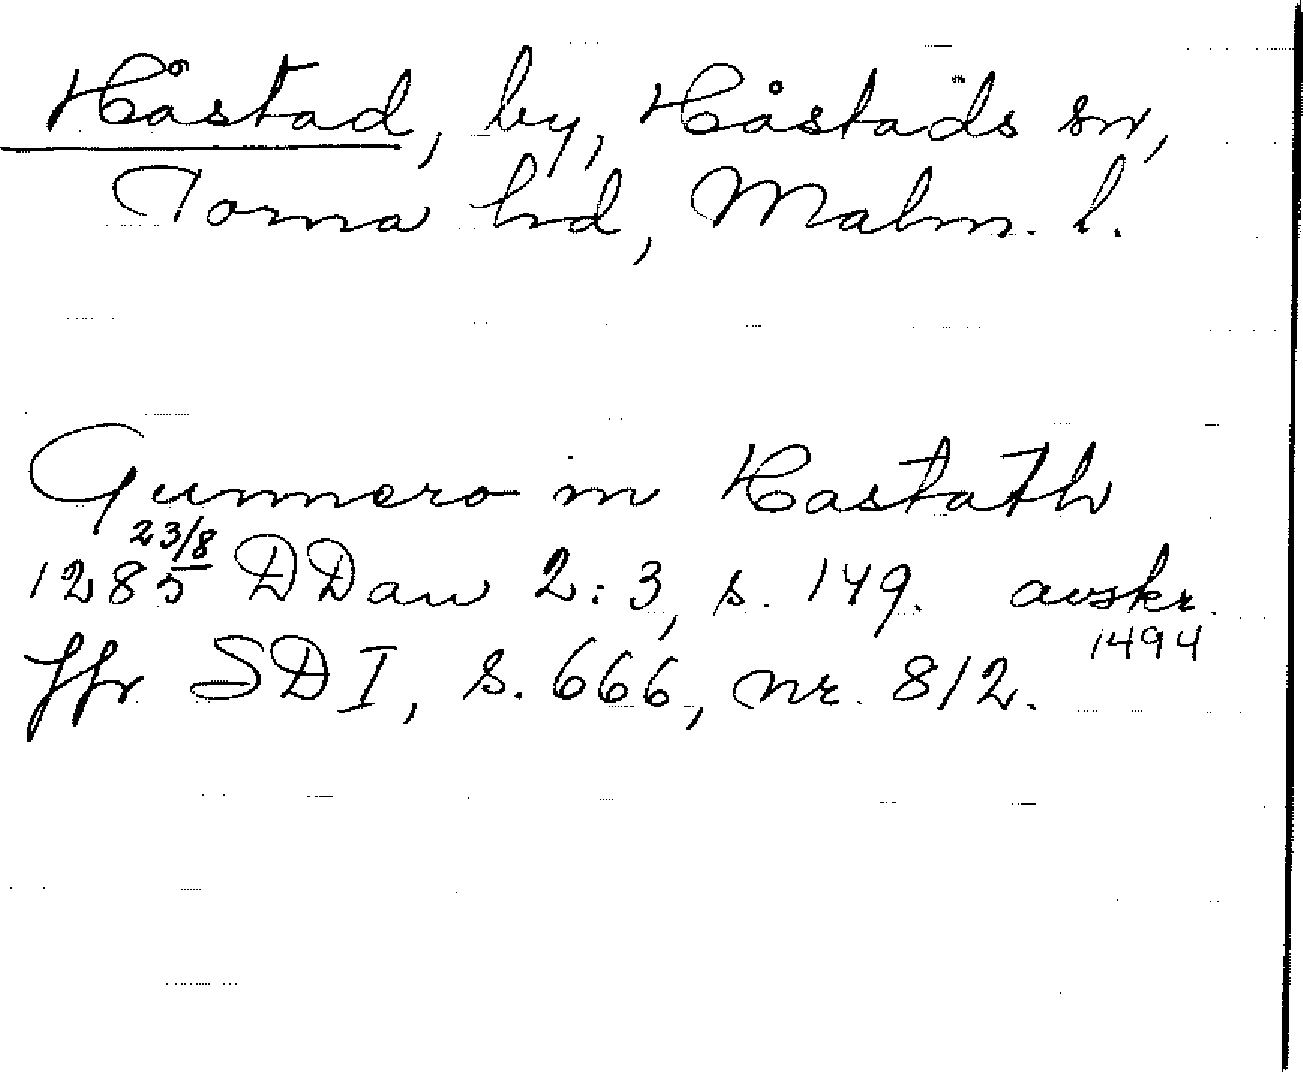 Håstad, by, Håstads sn,
Torna hd, Malm. l.
Gunnero in Hastath
23/8
1285 DDan 2:3, s. 149. avskr.
1494
Jfr SDI, s. 666, nr. 812.